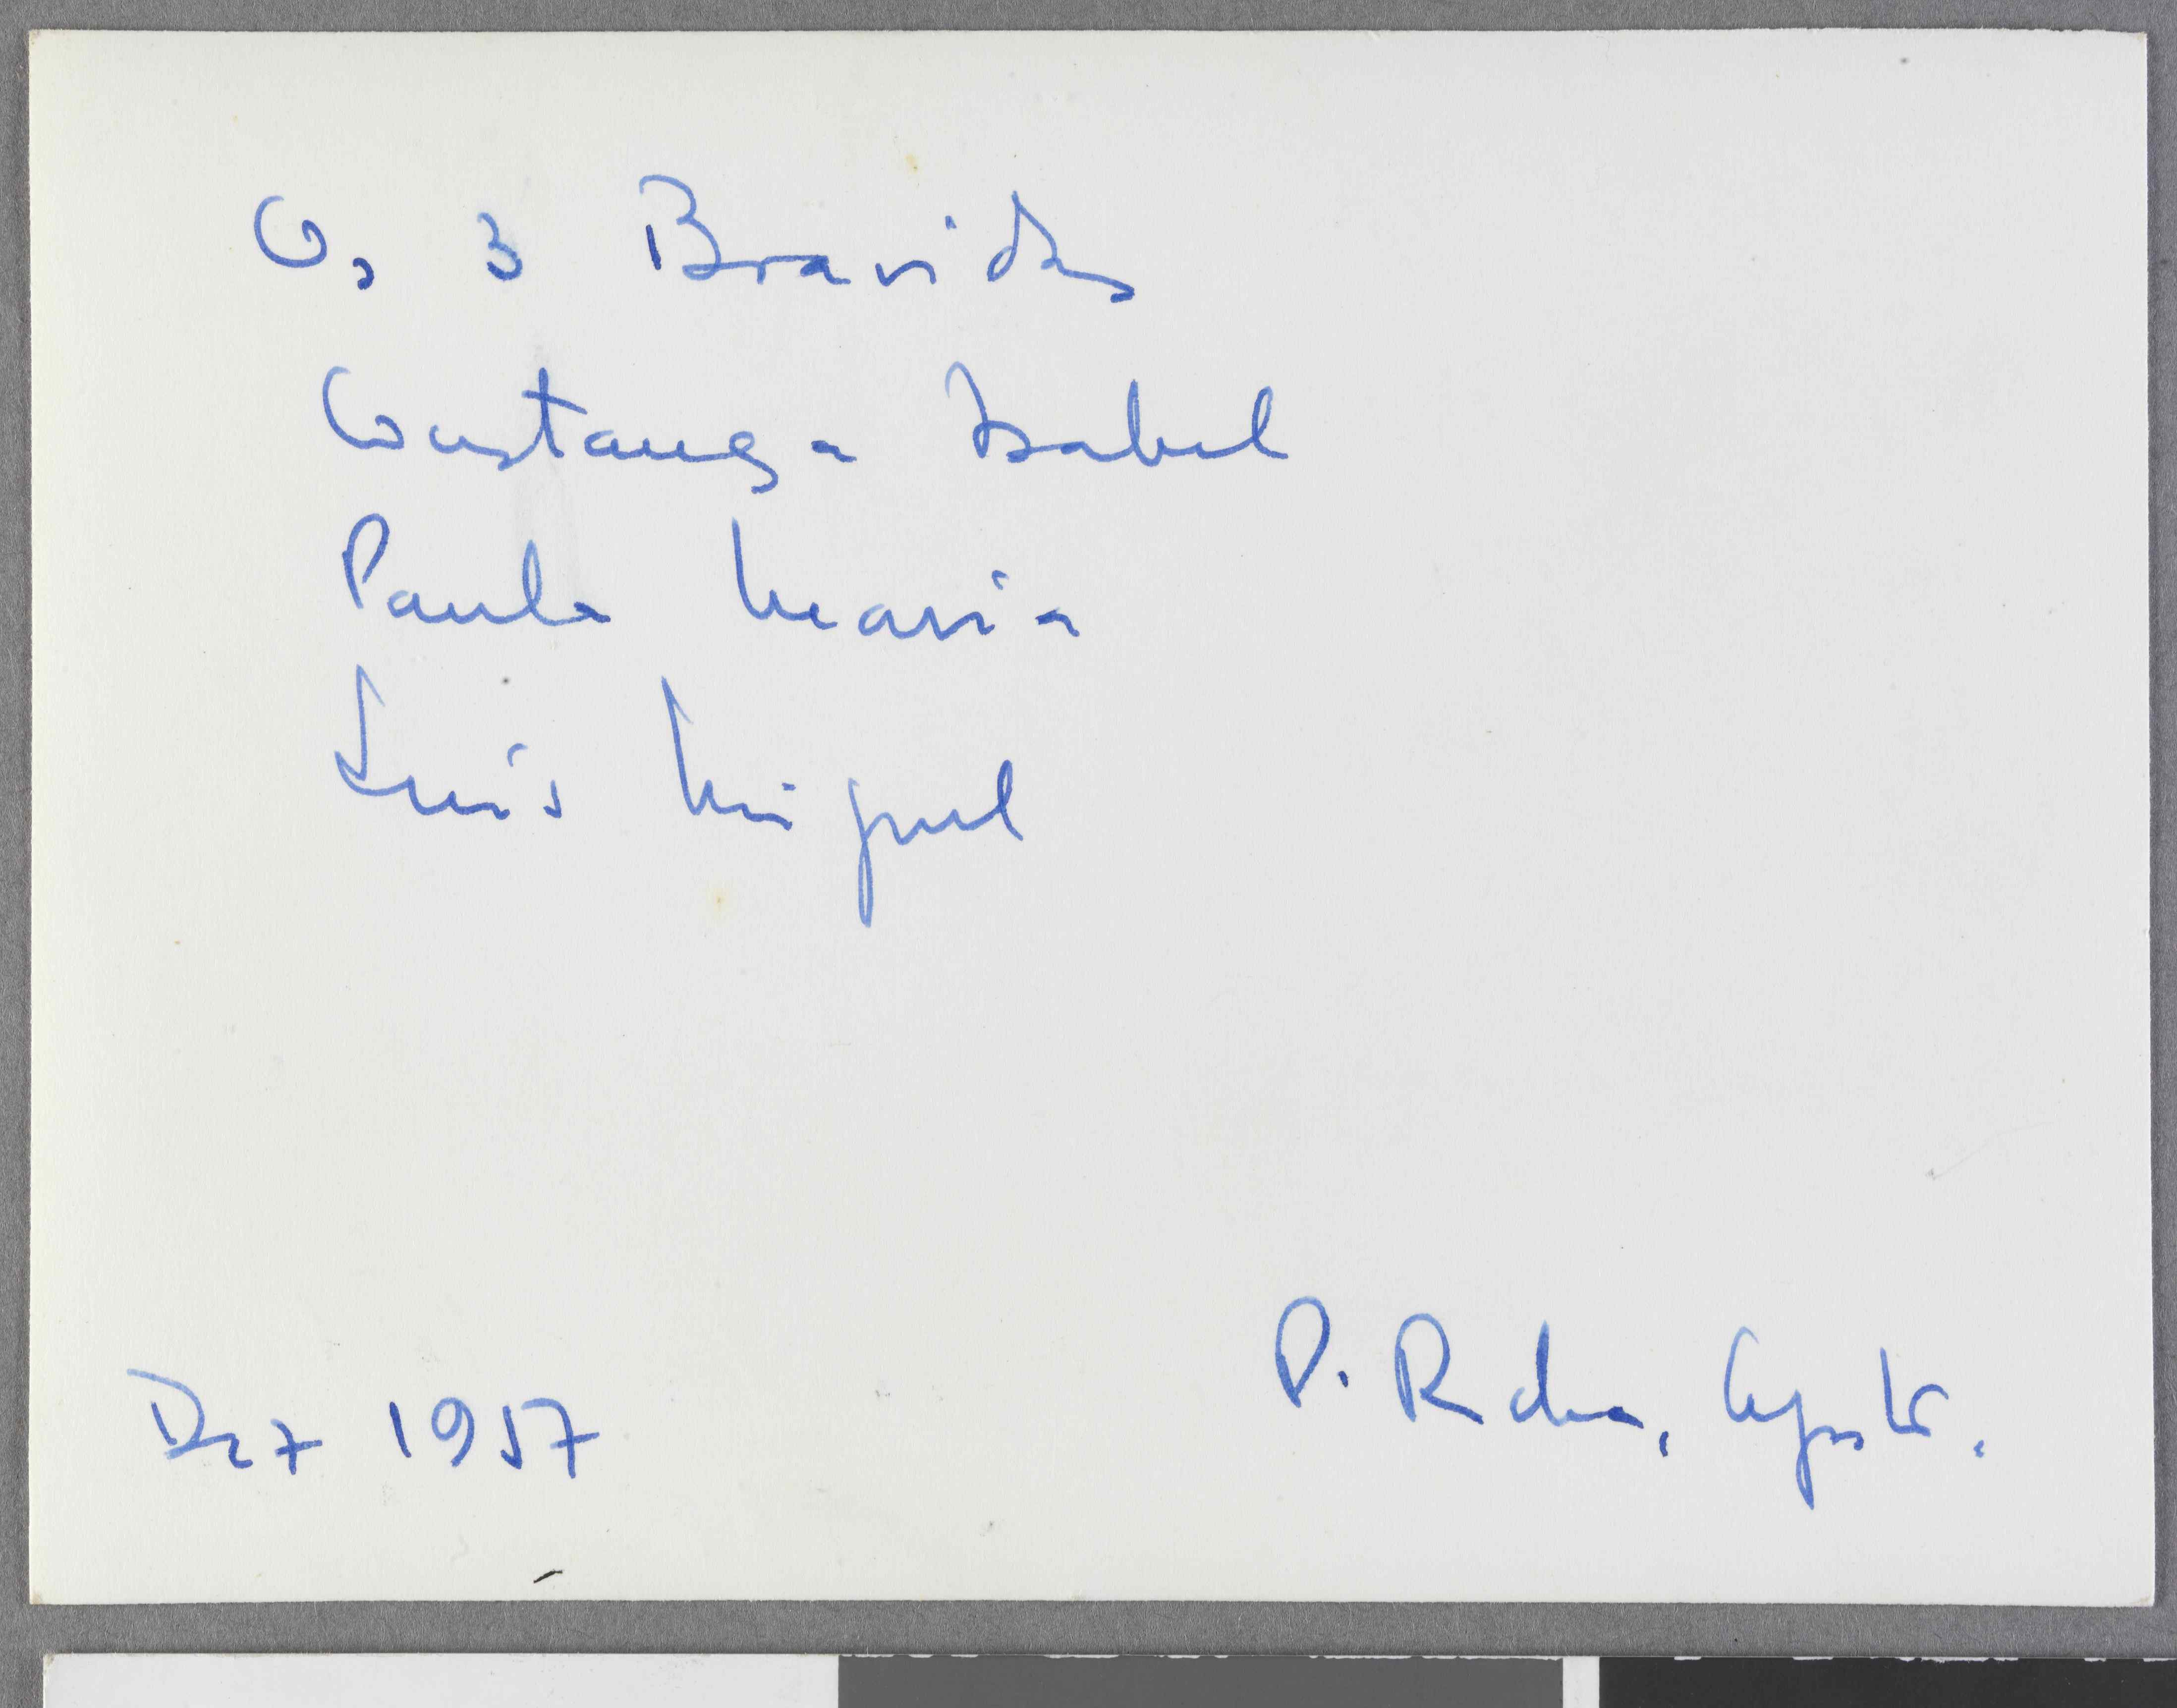 Os 3 Bravidas
Constança Isabel
Paula Maria
Luís Miguel
P. Rocha,
Dez 1957